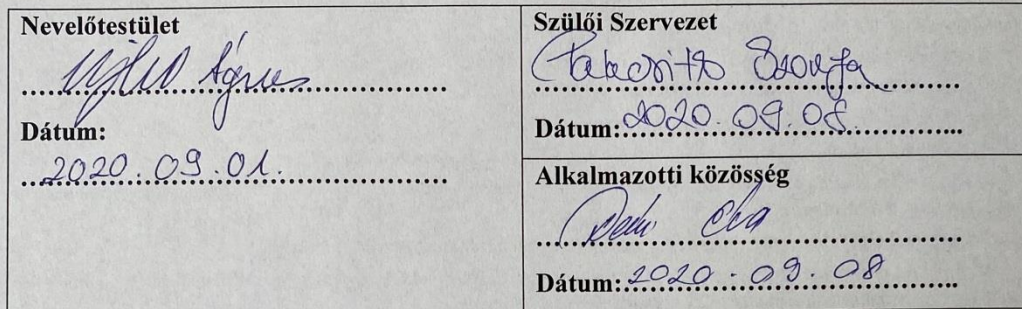 Nevelőtestület
Ágnes
Dátum:
2020.09.01.
Szülői Szervezet
Dátum: 2020.09.08.
Alkalmazotti közösség
Éva
Dátum: 2020.09.08